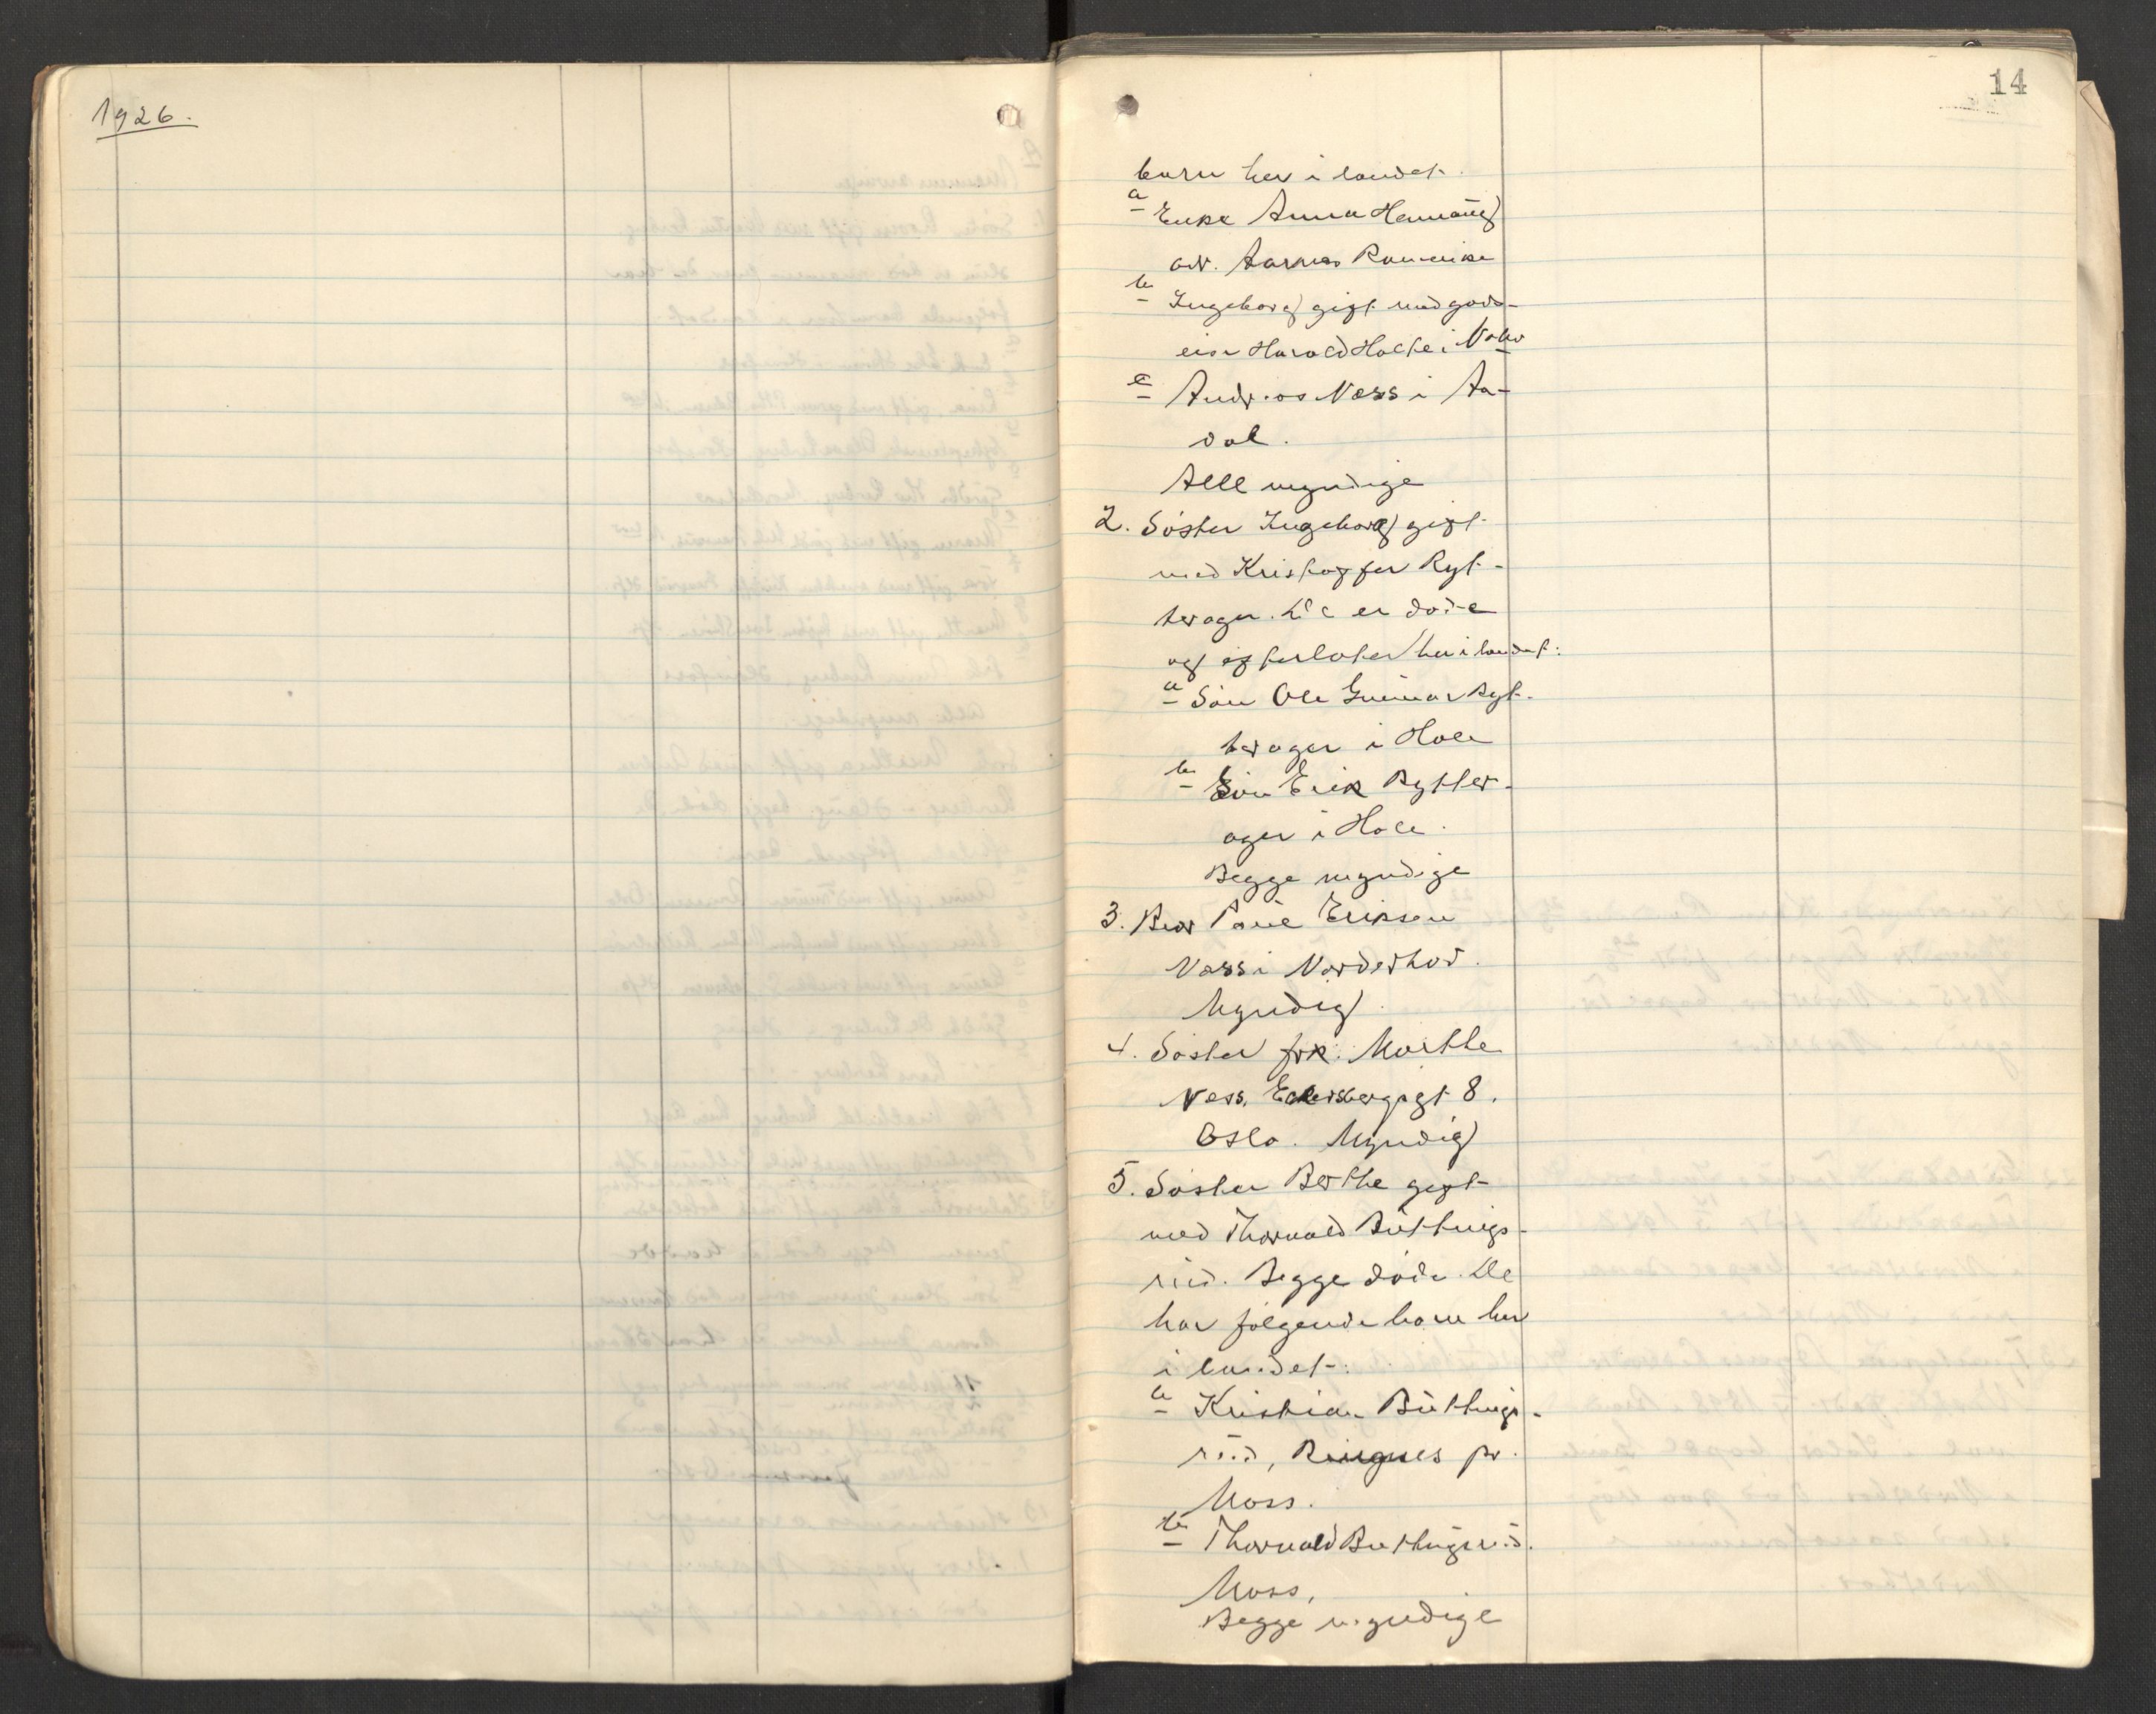 1926.
14
barn her i landet.
a Enke Anna Hennaug
adr. Aarnes Romerike
b Ingeborg gift med gard-
eier Harald Halke i Noko
c Andreas Næss i Aa-
dal.
Alle myndige
2. Søster Ingeborg gift
med Kristoffer Ryt-
terager. De er døde
og efterlater her i landet:
a Søn Ole Gunnar Ryt-
terager i Hole
b Søn Erik Rytter-
ager i Hole.
Begge myndige
3. Bror Paul Eriksen
Næss i Norderhov.
Myndig
4. Søster frk. Marthe
Næss, Eckersbergsgt 8.
Oslo. Myndig
5. Søster Berthe gift
med Thorvald Büttings-
rud. Begge døde. De
har følgende barn her
i landet:
a Kristian Büttings-
rud, Ringnes pr.
Moss.
b Thorvald Buttingsrud.
Moss,
Begge myndige